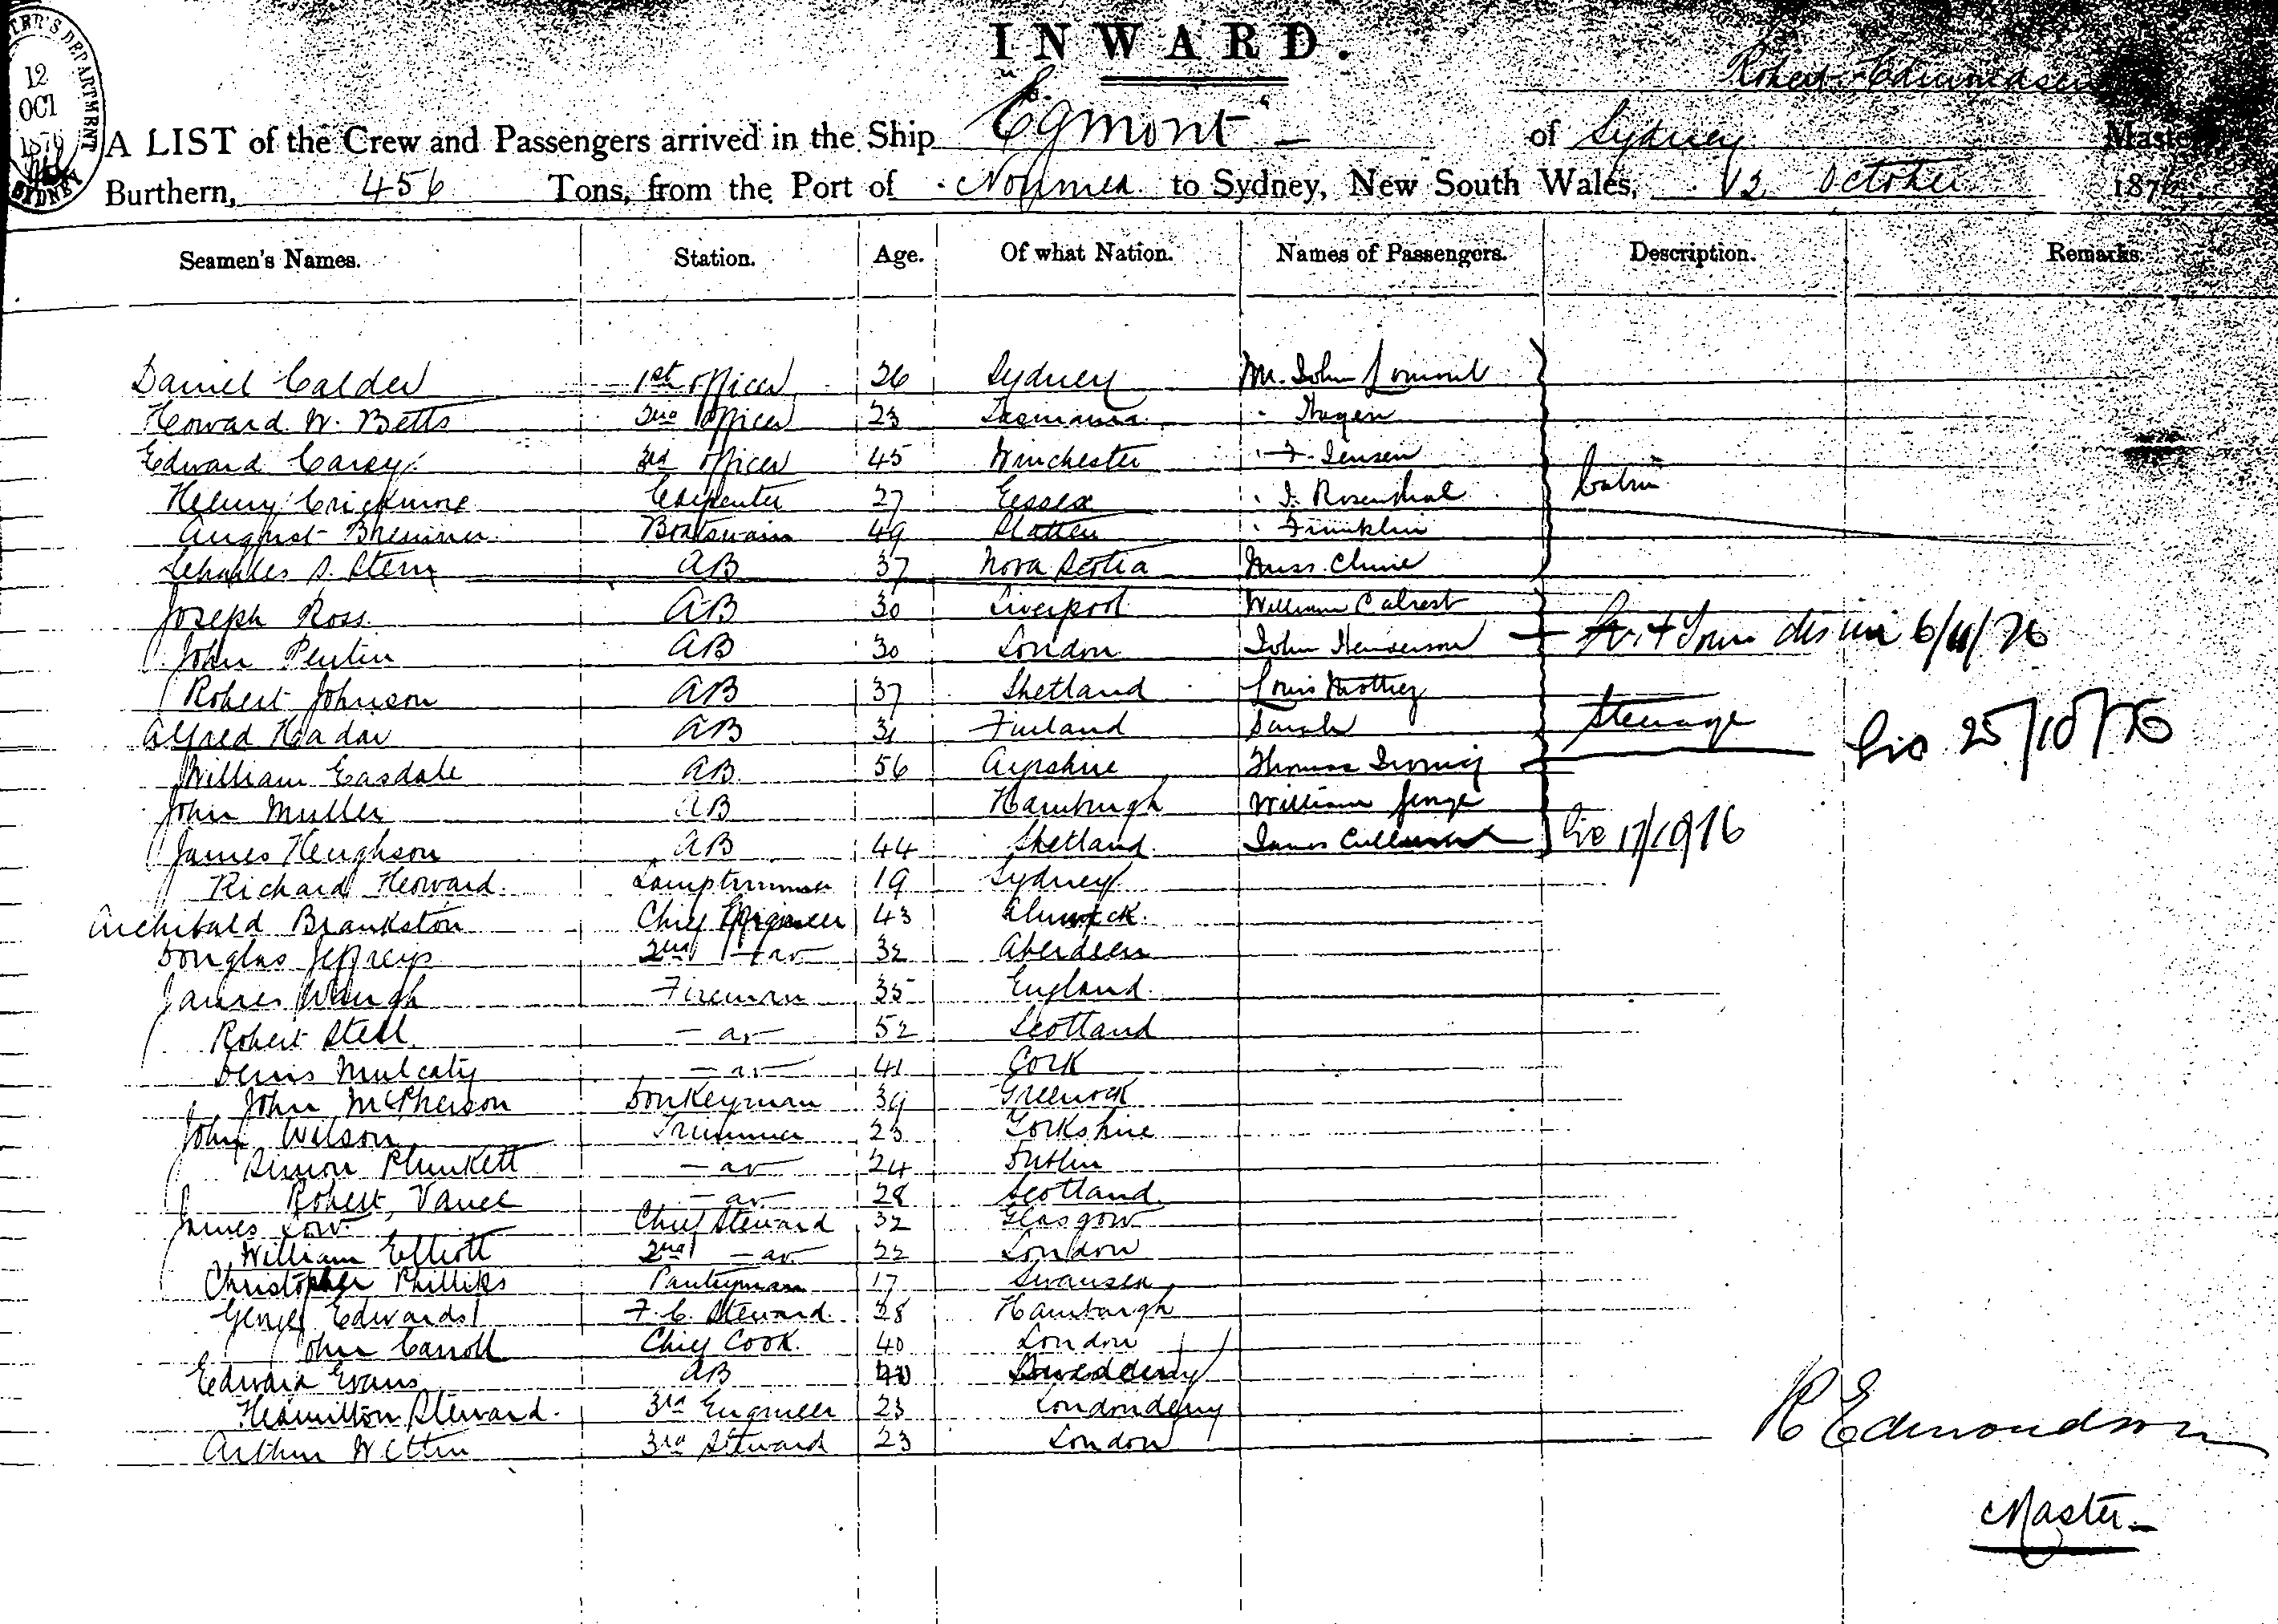 INWARD.
12
OCT
SYDNEY
Robert Edmondson
A LIST of the Crew and Passengers arrived in the Ship "Egmont" of Sydney Master
Burthern, 456 Tons, from the Port of Noumea to Sydney, New South Wales, 12 October 1876
Seamen's Names. Station. Age. Of what Nation. Names of Passengers. Description. Remarks.
Daniel Calder 1st officer 26 Sydney Mr. John
Howard W. Betts 2nd officer 23 Tasmania Hagen
Edward Carey 3rd officer 45 Winchester F. Jensen
Henry Crickmore Carpenter 27 Essex Rosenthal Cabin
August Boatswain 49 Franklin
Charles S. Stern AB 37 Nova Scotia Miss Clune
Joseph Ross AB 30 Liverpool William
John Pentin AB 30 London John Henderson
Robert Johnson AB 37 Shetland Louis
Alfred Hadar AB 31 Finland Sarah Steerage 25/10/76
William Easdale AB 56 Ayrshire Thomas
John Muller AB Hamburgh William George
James Heughson AB 44 Shetland James
Richard Howard Lamptrimmer 19 Sydney
Archibald Brankston Chief Engineer 43 Alnwick
Douglas Jeffreys 2nd - do - 32 Aberdeen
James Waugh Fireman 35 England
Robert Stell - do - 52 Scotland
Denis Mulcaty - do - 41 Cork
John McPherson Donkeyman 39 Greenock
John Wilson Trimmer 23 Yorkshire
Simon Plunkett - do - 24 Dublin
Robert - do - 28 Scotland
James Low Chief Steward 32 Glasgow
William Elliott 2nd - do - 22 London
Christopher Phillips Pantryman 17 Swansea
George Edwards F. C. Steward 28 Hamburgh
John Carroll Chief Cook 40 London
Edward Evans AB
Hamilton Steward 3rd Engineer 23 Londonderry
Arthur 3rd Steward 23 London
R Edmondson
Master